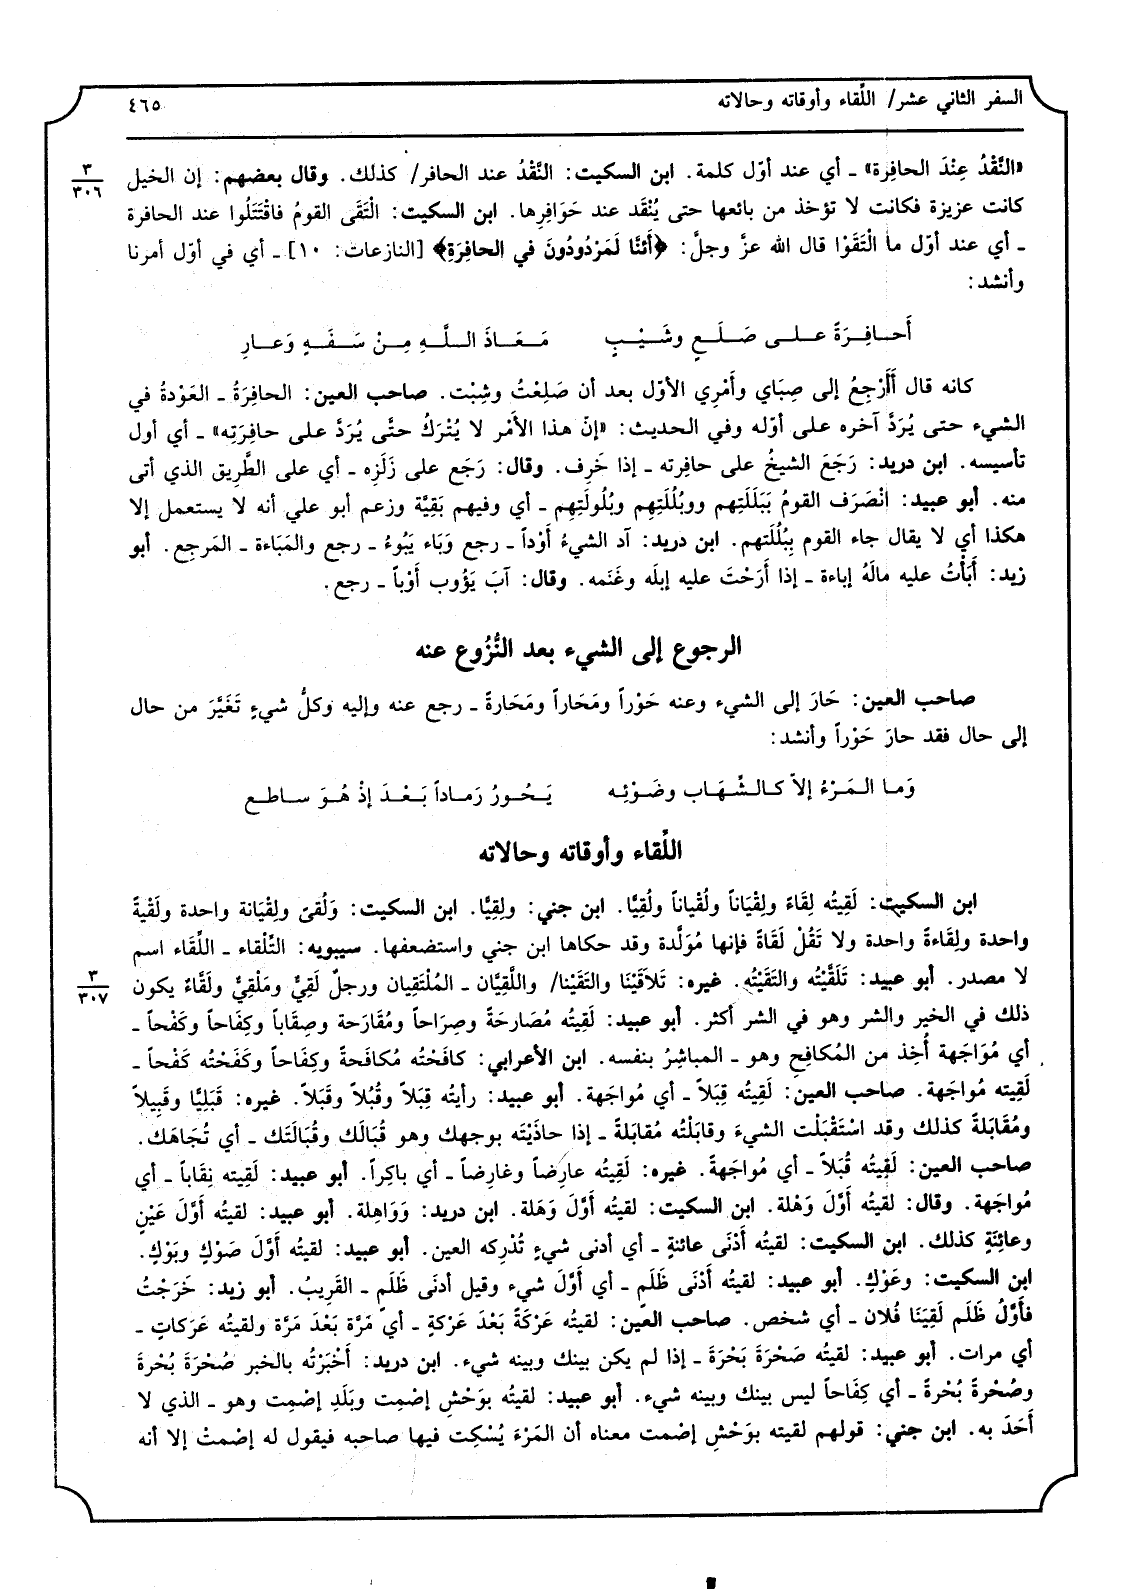 السفر الثاني عشر/ اللِّقاء وأوقاته وحالاته ٤٦٥
«النَّقْدُ عِنْدَ الحافِرة» ـ أي عند أوّل كلمة. ابن السكيت: النَّقْدُ عند الحافر/ كذلك. وقال بعضهم: إن الخيل
٣
٣٠٦
كانت عزيزة فكانت لا تؤخذ من بائعها حتى يُنْقَد عند حَوَافِرِها. ابن السكيت: الْتَقَى القومُ فاقْتَتَلُوا عند الحافرة
ـ أي عند أوّل ما الْتَقَوْا قال الله عزَّ وجلَّ: ﴿أَئنَّا لَمَرْدُودُونَ في الحافِرَةِ﴾ [النازعات: ١٠] ـ أي في أوّل أمرنا
وأنشد:
أَحـافِـرَةً عـلـى صَـلَـعٍ وشَـيْـبٍ مَـعَـاذَ الـلَّـهِ مِـنْ سَـفَـهٍ وَعـارِ
كانه قال أَأَرْجِعُ إلى صِبَاي وأَمْرِي الأوّل بعد أن صَلِعْتُ وشِبْت. صاحب العين: الحافِرَةُ ـ العَوْدة في
الشيء حتى يُرَدَّ آخره على أوّله وفي الحديث: «إنّ هذا الأَمْر لا يُتْرَكُ حتَّى يُرَدَّ على حافِرَتِه» ـ أي أول
تأسيسه. ابن دريد: رَجَعَ الشيخُ على حافِرته ـ إذا خَرِف. وقال: رَجَع على زَلَزِه ـ أي على الطَّرِيق الذي أتى
منه. أبو عبيد: انْصَرَف القومُ بَبَلَلَتِهم ووبُلُلَتِهِم وبُلُولَتِهِم ـ أي وفيهم بَقِيَّة وزعم أبو علي أنه لا يستعمل إلا
هكذا أي لا يقال جاء القوم بِبُلُلَتهم. ابن دريد: آد الشيءُ أَوْداً ـ رجع وَبَاء يَبُوءُ ـ رجع والمَبَاءة ـ المَرجِع. أبو
زيد: أَبَأْتُ عليه مالَهُ إباءة ـ إذا أَرَحْتَ عليه إبلَه وغَنَمه. وقال: آبَ يَؤُوب أَوْباً ـ رجع.
الرجوع إلى الشيء بعد النُّزُوع عنه
صاحب العين: حَارَ إلى الشيء وعنه حَوْراً ومَحَاراً ومَحَارةً ـ رجع عنه وإليه وكلُّ شيءٍ تَغَيَّرَ من حال
إلى حال فقد حارَ حَوْراً وأنشد:
وَمـا الـمَـرْءُ إلاّ كـالـشِّـهَـاب وضَـوْئِـه يَـحُـورُ رَمـاداً بَـعْـدَ إذْ هُـوَ سـاطـع
اللِّقاء وأوقاته وحالاته
ابن السكيت: لَقِيتُه لِقَاءً ولِقْيَاناً ولُقْياناً ولُقِيًّا. ابن جني: ولِقِيًّا. ابن السكيت: وَلُقىً ولِقْيَانة واحدة ولَقْيةً
واحدة ولِقَاءةً واحدة ولا تَقُلْ لَقَاةً فإنها مُوَلَّدة وقد حكاها ابن جني واستضعفها. سيبويه: التِّلْقاء ـ اللِّقَاء اسم
لا مصدر. أبو عبيد: تَلَقَّيْتُه والتَقَيْتُه. غيره: تَلاَقَيْنَا والتَقَيْنا/ واللَّقِيَّان ـ المُلْتَقِيان ورجلٌ لَقِيٌّ ومَلْقِيٌّ ولَقَّاءٌ يكون
٣
٣٠٧
ذلك في الخير والشر وهو في الشر أكثر. أبو عبيد: لَقِيتُه مُصَارحَةً وصِرَاحاً ومُقَارَحة وصِقَاباً وكِفَاحاً وكَفْحاً ـ
أي مُوَاجَهة أُخِذ من المُكافِحِ وهو ـ المباشِرُ بنفسه. ابن الأعرابي: كافَحْتُه مُكافحةً وكِفَاحاً وكَفَحْتُه كَفْحاً ـ
لَقِيته مُواجَهة. صاحب العين: لَقِيتُه قِبَلاً ـ أي مُواجَهة. أبو عبيد: رأيتُه قِبَلاً وقُبُلاً وقَبَلاً. غيره: قَبَلِيًّا وقَبِيلاً
ومُقَابلةً كذلك وقد اسْتَقْبَلْت الشيءَ وقابَلْتُه مُقابلةً ـ إذا حاذَيْتَه بوجهك وهو قُبَالَك وقُبَالَتَك ـ أي تُجَاهَك.
صاحب العين: لَقِيتُه قُبَلاً ـ أي مُواجَهةً. غيره: لَقِيتُه عارِضاً وغارِضاً ـ أي باكِراً. أبو عبيد: لَقِيته نِقَاباً ـ أي
مُواجَهة. وقال: لقيتُه أَوَّلَ وَهْلة. ابن السكيت: لقيتُه أَوَّلَ وَهَلة. ابن دريد: وَوَاهِلة. أبو عبيد: لقيتُه أَوَّلَ عَيْنٍ
وعائِنَةٍ كذلك. ابن السكيت: لقيتُه أَدْنَى عائنةٍ ـ أي أدنى شيءٍ تُدْرِكه العين. أبو عبيد: لقيتُه أَوَّلَ صَوْكٍ وبَوْكٍ.
ابن السكيت: وعَوْكٍ. أبو عبيد: لقيتُه أَدْنَى ظَلَمٍ ـ أي أَوَّلَ شيء وقيل أدنَى ظَلَمٍ ـ القَريبُ. أبو زيد: خَرَجْتُ
فأَوَّلُ ظَلَم لَقِيَنَا فُلان ـ أي شخص. صاحب العين: لقيتُه عَرْكَةً بَعْدَ عَرْكةٍ ـ أي مَرَّة بَعْدَ مَرَّة ولقيتُه عَرَكاتٍ ـ
أي مرات. أبو عبيد: لقيتُه صَحْرَةَ بَحْرَةَ ـ إذا لم يكن بينك وبينه شيء. ابن دريد: أَخْبَرْتُه بالخبر صُحْرَةَ بُحْرةَ
وصُحْرةً بُحْرةً ـ أي كِفَاحاً ليس بينك وبينه شيء. أبو عبيد: لقيتُه بوَحْشِ إصْمِت وبَلَدِ إصْمِت وهو ـ الذي لا
أَحَدَ به. ابن جني: قولهم لقيته بوَحْشِ إصْمت معناه أن المَرْءَ يُسْكِت فيها صاحبه فيقول له إصْمتْ إلا أنه